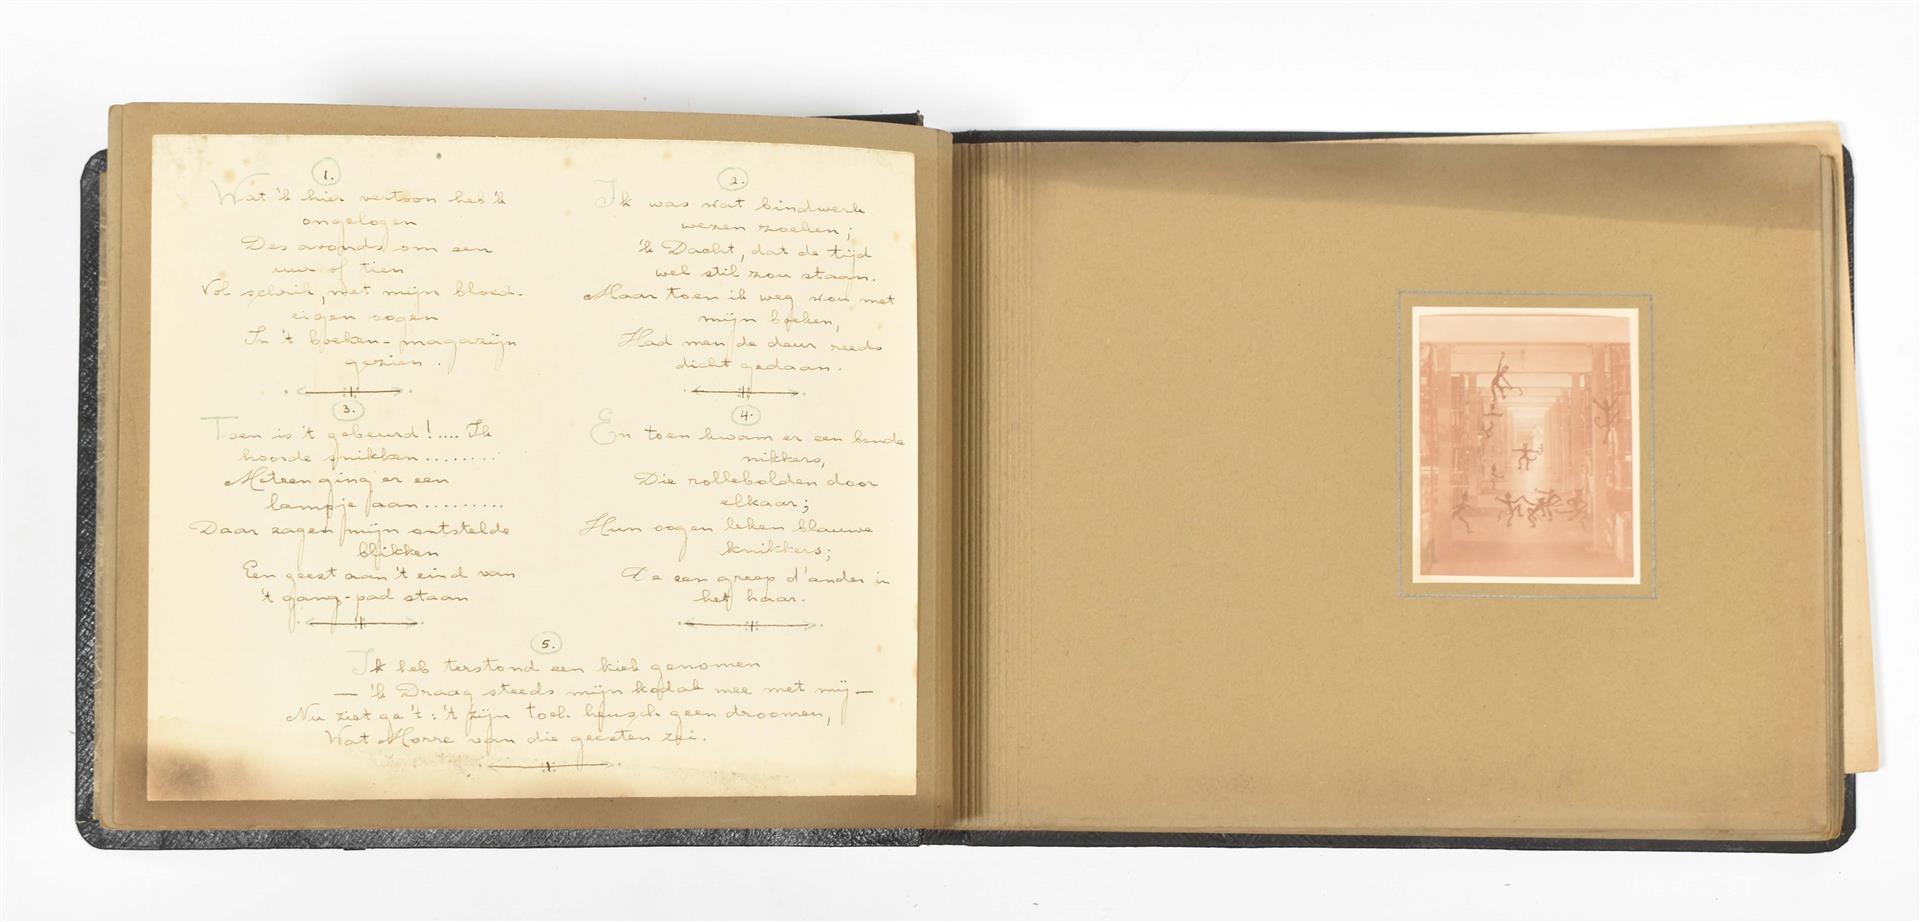 1.
Wat 'k hier vertoon heb 'k
ongelogen
Des avonds om een
uur of tien
Vol schrik, met mijn bloed-
eigen oogen
In 't boeken-magazijn
gezien.
2.
Ik was wat bindwerk
wezen zoeken;
'k Dacht, dat de tijd
wel stil zou staan.
Maar toen ik weg wou met
mijn boeken,
Had men de deur reeds
dicht gedaan.
3.
Toen is 't gebeurd!.... Ik
hoorde snikken........
Meteen ging er een
lampje aan.........
Daar zagen mijn ontstelde
blikken
Een geest aan 't eind van
't gang-pad staan
4.
En toen kwam er een bende
nikkers,
Die rollebolden door
elkaar;
Hun oogen leken blauwe
knikkers;
De een greep d'ander in
het haar.
5.
Ik heb terstond een kiek genomen
— 'k Draag steeds mijn kodak mee met mij —
Nu ziet ge 't: 't zijn toch heusch geen droomen,
Wat Morre van die geesten zei.